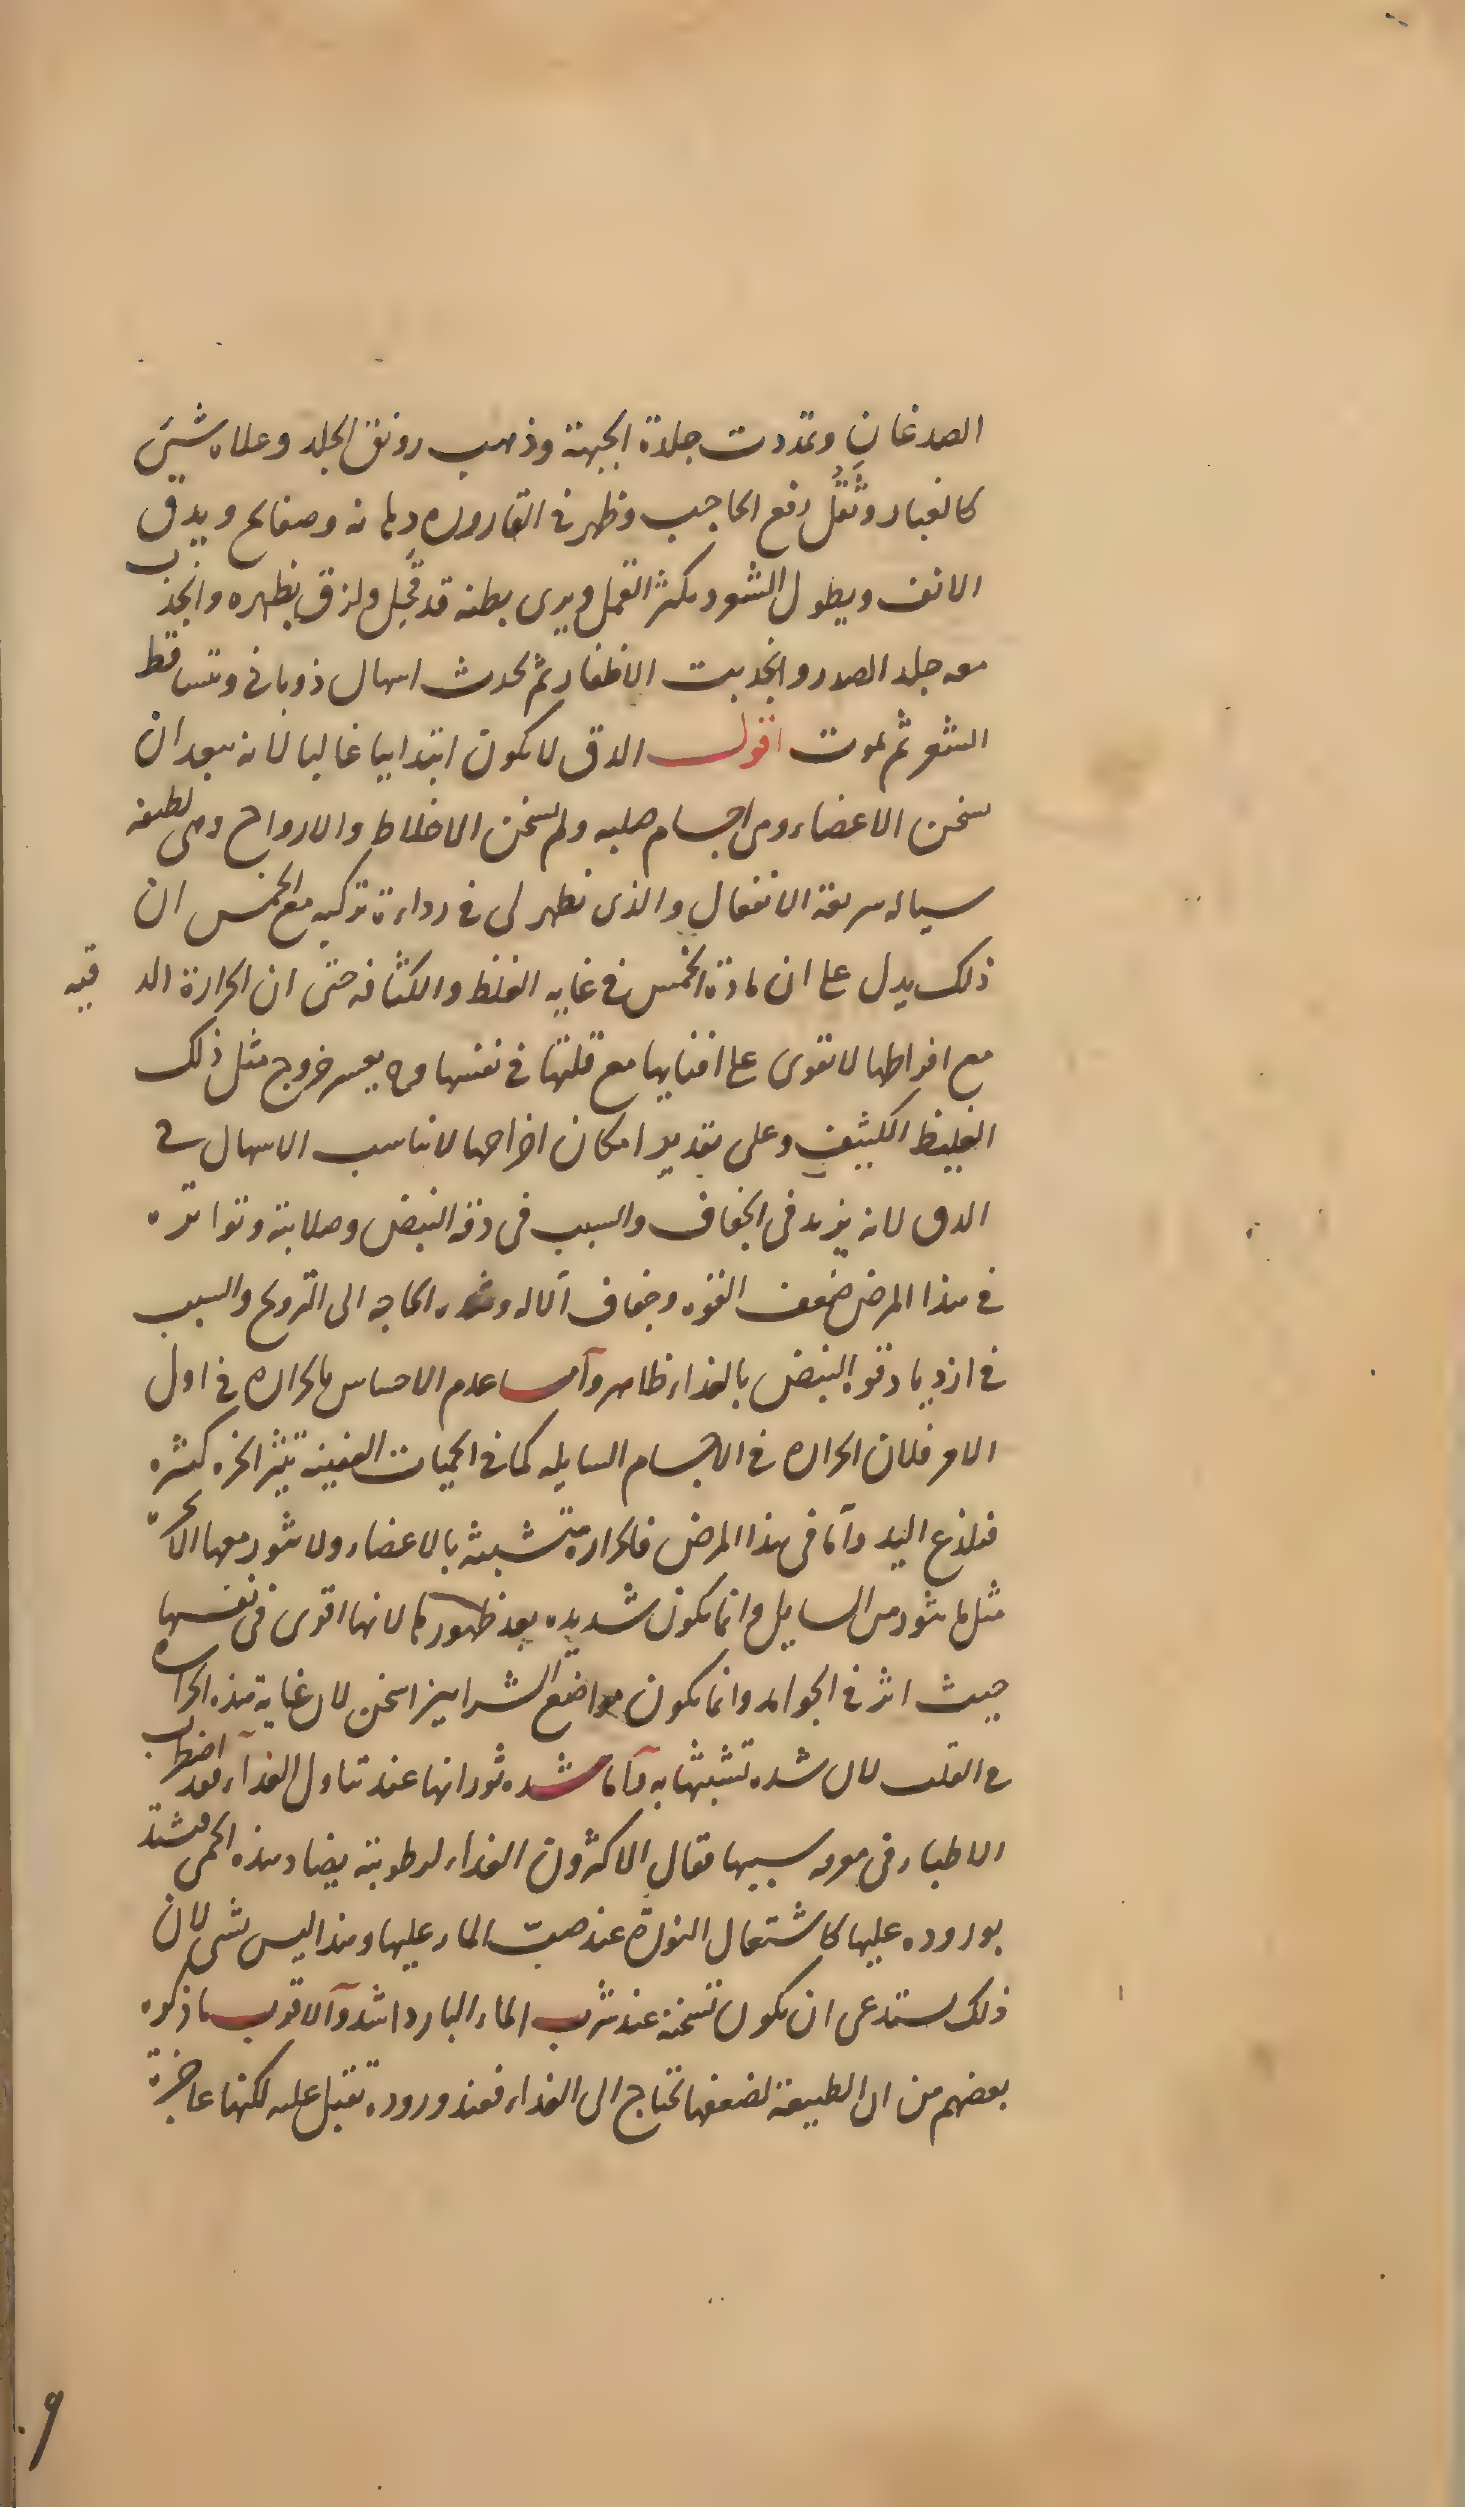 الصدغان وتمددت جلدة الجبهة وذهب رونق الجلد وعلاه شيئ
كالغبار وثَقُل رفع الحاجب وظهر فى القاروره دهانه وصفايح ويدق
الانف ويطول الشعر ويكثر القمل ويرى بطنه قد قحِل ولزق بظهره وانجذب
معه جلد الصدر وانجذبت الاظفار ثم يحدث اسهال ذوبانى ويتساقط
الشعر ثم يموت اقول الدق لا يكون ابتدائيا غالبا لانه يبعد ان
يسخن الاعضاء وهى اجسام صلبه ولم يسخن الاخلاط والارواح وهى لطيفه
سياله سريعة الانفعال والذى يظهر لى فى رداءة تركبه مع الخمس ان
ذلك يدل على ان مادة الخمس فى غايه الغلظ والكثافه حتى ان الحرارة الد قيه
مع افراطها لا تقوى على افنايها مع قلتها فى نفسها وح يعسر خروج مثل ذلك
الغليظ الكثيف وعلى تقدير امكان اخراجها لا يناسب الاسهال فى
الدق لانه يزيد فى الجفاف والسبب فى دقه النبض وصلابته وتواتره
فى هذا المرض ضعف القوه وجفاف الاله وشده الحاجه الى الترويح والسبب
فى ازدياد قوه النبض بالغذاء ظاهر وآما عدم الاحساس بالحراره فى اول
الامر فلان الحراره فى الاجسام السايله كما فى الحميات العفينه تثير ابخره كثيره
فيلذع اليد وآما فى هذا المرض فالحراره متشبثه بالاعضاء ولا يثور معها الابخرة
مثل ما يثور من السايل وانما يكون شديده بعد ظهورها لانها اقوى فى نفسها
حيث اثر فى الجوامد وانما يكون مواضع الشرايين اسخن لان غاية هذه الحراره
فى القلب لان شده تشبثها به وآما شده ثورانها عند تناول الغذاء فقد اضطرب
الاطباء فى معرفه سببها فقال الاكثرون الغذاء لرطوبته يضاد هذه الحمى فيشتد
بوروده عليها كاشتعال النورة عند صبّ الماء عليها وهذا ليس بشى لان
ذلك يستدعى ان يكون تسخنه عند شرب الماء البارد اشد وآلاقرب ما ذكره
بعضهم من ان الطبيعة لضعفها تحتاج الى الغذاء فعند وروده تقبل عليه لكنها عاجزة